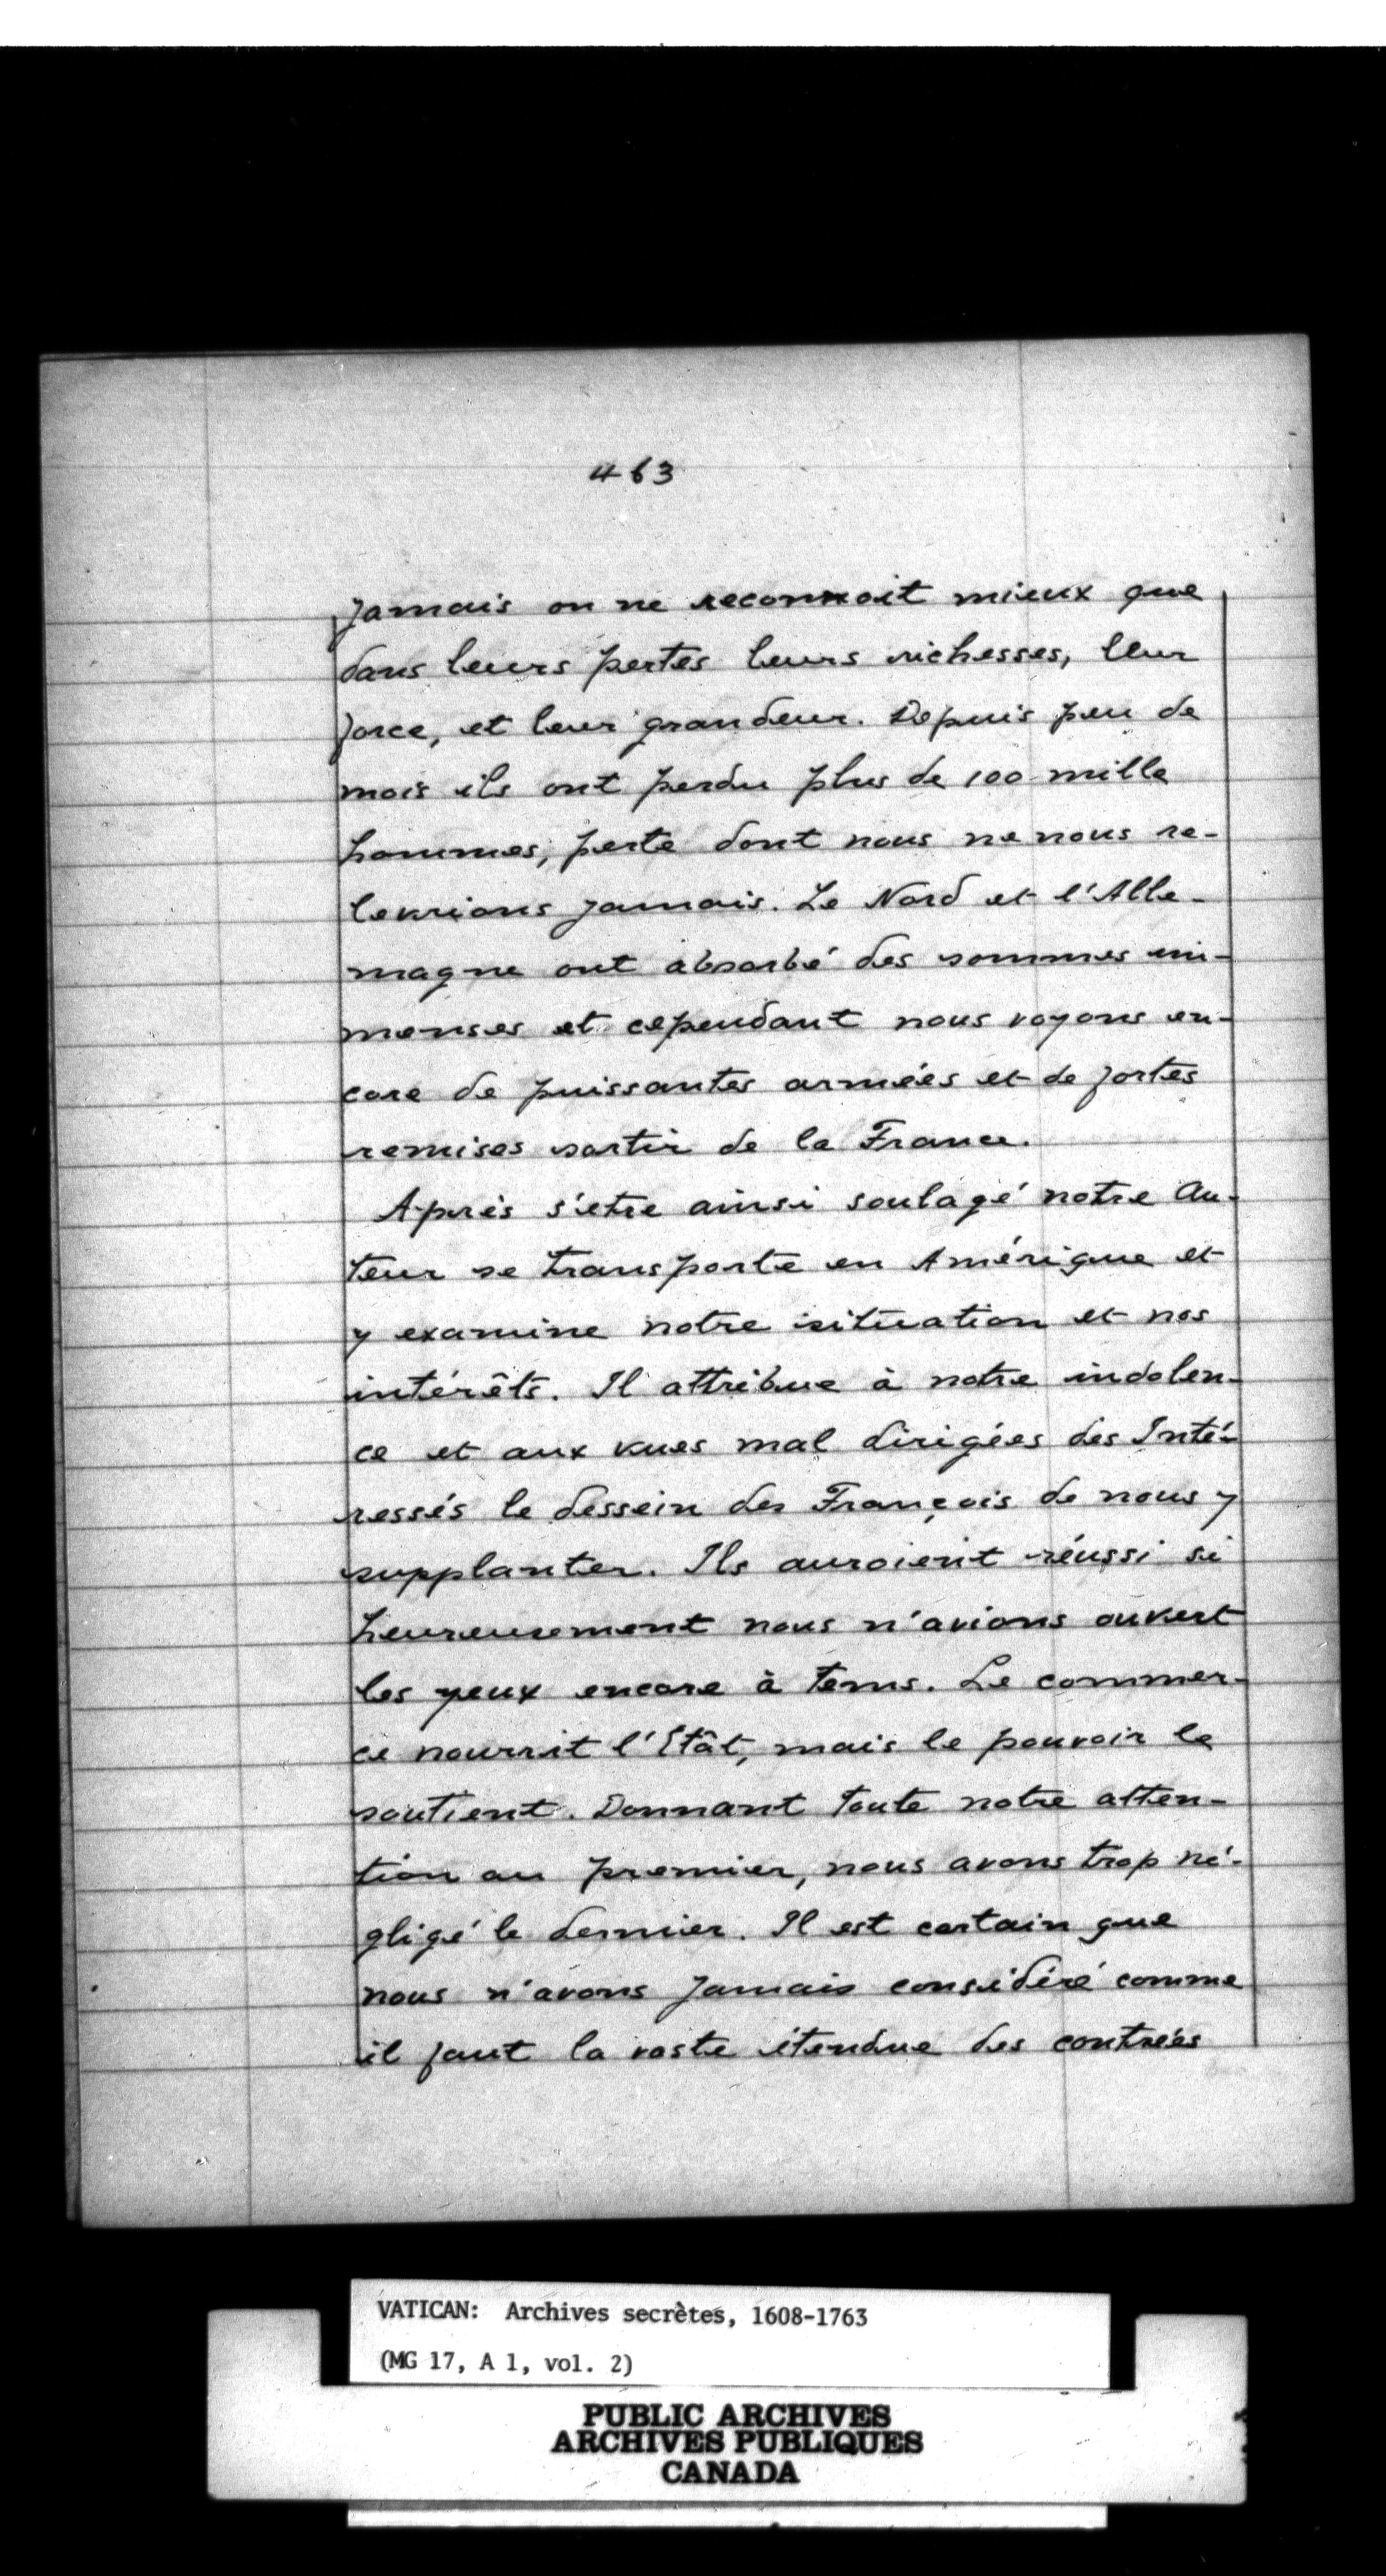 463
jamais on ne reconnoit mieux que
dans leurs pertes leurs richesses, leur
force, et leur grandeur. Depuis peu de
mois ils ont perdu plus de 100 mille
hommes, perte dont nous ne nous re-
levrions jamais. Le Nord et l'Alle-
magne ont absorbé des sommes im-
menses et cependant nous voyons en-
core de puissantes armées et de fortes
remises sortir de la France.
Après s'etre ainsi soulagé notre Au-
teur se transporte en Amérique et
y examine notre situation et nos
intérêts. Il attribue à notre indolen-
ce et aux vues mal dirigées des Inté-
ressés le dessein des François de nous y
supplanter. Ils auroient réussi si
heureusement nous n'avions ouvert
les yeux encore à tems. Le commer-
ce nourrit l'Etât, mais le pouvoir le
soutient. Donnant toute notre atten-
tion au premier, nous avons trop né-
gligé le dernier. Il est certain que
nous n'avons jamais considéré comme
il faut la vaste étendue des contrées
VATICAN: Archives secrètes, 1608-1763
(MG 17, A 1, vol. 2)
PUBLIC ARCHIVES
ARCHIVES PUBLIQUES
CANADA